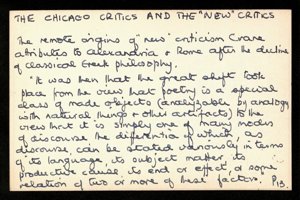 THE CHICAGO CRITICS AND THE "NEW" CRITICS
The remote origins of "new" criticism Crane
attributes to Alexandria & Rome after the decline
of classical Greek philosophy.
"It was then that the great shift took
place from the view that poetry is a special
class of made objects (analyzable by analogy
with natural things & other artifacts) to the
view that it is simply one of many modes
of discourse the differentia of which, as
discourse, can be stated variously in terms
of its language, its subject matter, its
productive cause, its end or effect, or some
relation of two or more of these factors." P13.